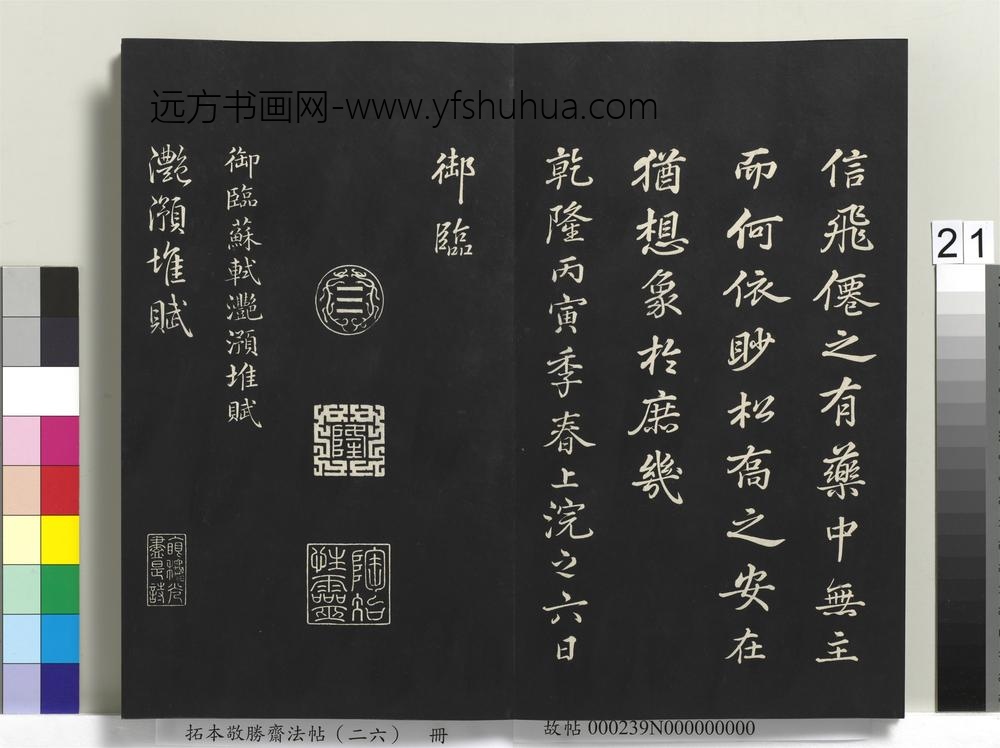 远方书画网-www.yfshuhua.com
信飛僊之有藥中無主
而何依眇松高之安在
猶想象於庶幾
乾隆丙寅季春上浣之六日
御臨
陶冶性靈
御臨蘇軾灔澦堆賦
灔澦堆賦
21
拓本敬勝齋法帖(二六) 冊
故帖 000239N000000000